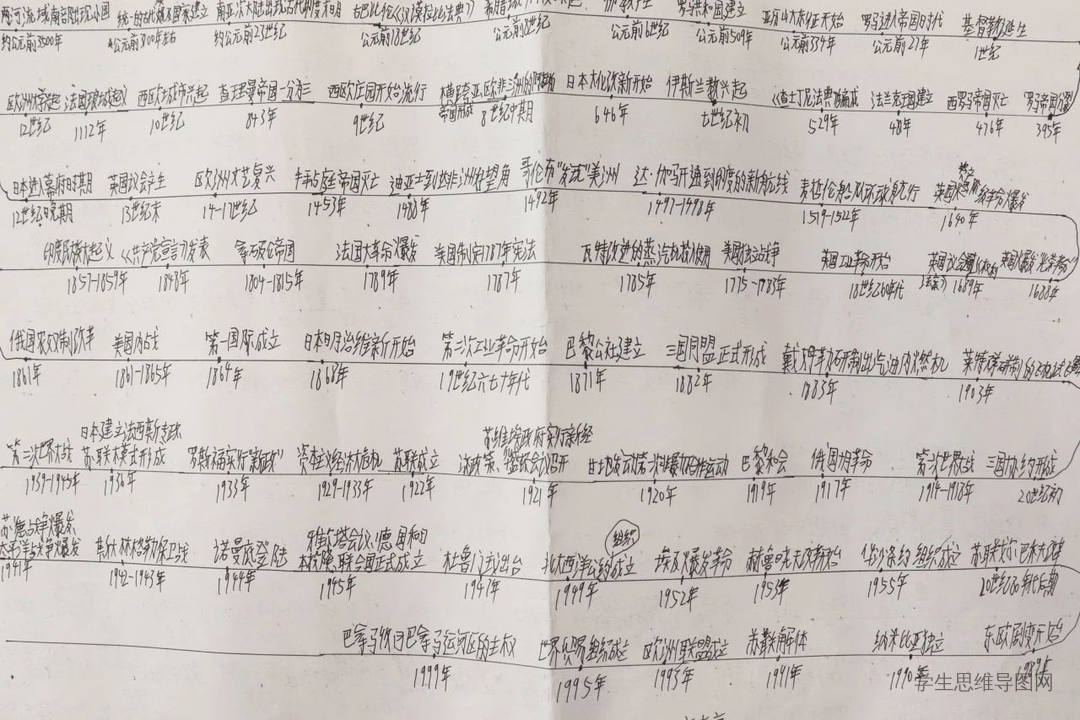 两河流域南部出现小国 统一的古代埃及国家建立
约公元前3500年 公元前3100年左右 约公元前23世纪 公元前18世纪 公元前8世纪 公元前6世纪 公元前509年 公元前334年 公元前27年 1世纪
罗马共和国建立 亚历山大东征开始 罗马进入帝国时代 基督教诞生
欧洲大学兴起 法国琅城起义 西欧城市兴起 查理曼帝国一分为三 西欧庄园开始流行 横跨亚、欧、非三洲的阿拉伯帝国形成 日本大化改新开始 伊斯兰教兴起 《查士丁尼法典》编成 法兰克王国建立 西罗马帝国灭亡 罗马帝国分裂
12世纪 1112年 10世纪 843年 9世纪 8世纪中期 646年 七世纪初 529年 481年 476年 395年
日本进入幕府时期 英国议会产生 欧洲文艺复兴 拜占庭帝国灭亡 迪亚士到达非洲好望角 哥伦布“发现”美洲 达·伽马开通到印度的新航线 麦哲伦船队环球航行 英国资产阶级革命爆发
12世纪晚期 13世纪末 14-17世纪 1453年 1488年 1492年 1497-1498年 1519-1522年 1640年
印度民族大起义 《共产党宣言》发表 拿破仑帝国 法国大革命爆发 美国制定1787年宪法 瓦特改进的蒸汽机投入使用 美国独立战争 英国工业革命开始 英国议会通过《权利法案》 英国爆发“光荣革命”
1857-1859年 1848年 1804-1815年 1789年 1787年 1785年 1775-1783年 18世纪60年代 1689年 1688年
俄国农奴制改革 美国内战 第一国际成立 日本明治维新开始 第二次工业革命开始 巴黎公社建立 三国同盟正式形成 戴姆勒研制出汽油内燃机 莱特兄弟研制的飞机试飞
1861年 1861-1865年 1864年 1868年 19世纪六七十年代 1871年 1882年 1883年 1903年
日本建立法西斯专政 苏维埃政府实行新经
第二次世界大战 苏联模式形成 罗斯福实行“新政” 资本主义经济大危机 苏联成立 济政策、华盛顿会议召开 甘地发动第一次非暴力不合作运动 巴黎和会 俄国十月革命 第一次世界大战 三国协约形成
1939-1945年 1936年 1933年 1929-1933年 1922年 1921年 1920年 1919年 1917年 1914-1918年 20世纪初
苏德战争爆发、 雅尔塔会议、德国和日 组织
太平洋战争爆发 斯大林格勒保卫战 诺曼底登陆 本投降、联合国正式成立 杜鲁门主义出台 北大西洋公约成立 埃及爆发革命 赫鲁晓夫改革开始 华沙条约组织成立
1941年 1942-1943年 1944年 1945年 1947年 1949年 1952年 1953年 1955年 20世纪60年代后期
巴拿马收回巴拿马运河区的主权 世界贸易组织成立 欧洲联盟成立 苏联解体 纳米比亚独立 东欧剧变开始
1999年 1995年 1993年 1991年 1990年 1989年
学生思维导图网